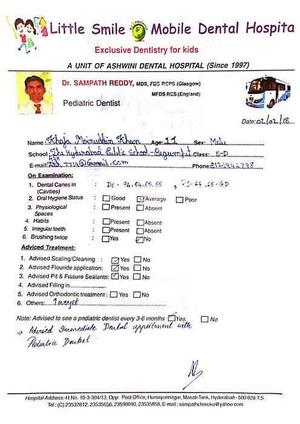 Little Smile Mobile Dental Hospita
Exclusive Dentistry for kids
A UNIT OF ASHWINI DENTAL HOSPITAL (Since 1997)
Dr. SAMPATH REDDY, MDS, FDS RCPS (Glasgow)
MFDS RCS (England)
Pediatric Dentist
Date:
Name: Khaja Khan Age: 11 Sex: Male
School: The Hyderabad Public School - Begumpet Class: 5-D
E-mail: @Gmail.com Phone:
On Examination:
1. Dental Caries in (Cavities)
2. Oral Hygiene Status : Good Average Poor
3. Physiological Spaces : Present Absent
4. Habits : Present Absent
5. Irregular teeth : Present Absent
6. Brushing twice : Yes No
Adviced Treatment:
1. Advised Scaling/Cleaning : Yes No
2. Advised Flouride application: Yes No
3. Advised Pit & Fissure Sealants: Yes No
4. Advised Filling in
5. Advised Orthodontic treatment : Yes No
6. Others:
Note: Advised to see a pediatric dentist every 3-6 months Yes No
Advised Immediate Dental appointment with
Pediatric Dentist
Hospital Address:-H.No. 10-3-304/13, Opp. Post Office, Humayunnagar, Masab Tank, Hyderabad - 500 028 T.S.